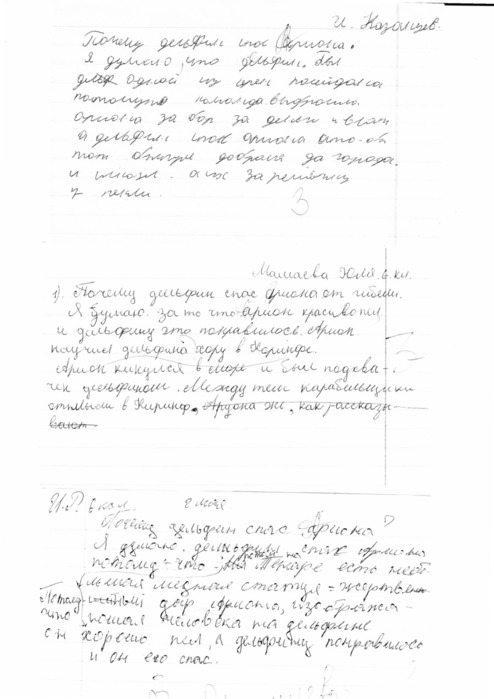 И. Казанцев.
Почему дельфин спас Ариона.
Я думаю, что дельфин. был
одной из
потомучто команда выбросила
ариона за бор за денги и вещи
а дельфин спас ариона
добрался до города.
и их за решётку
3
Мамаева Юля 6 кл.
1). Почему дельфин спас ариона от гибели.
Я думаю. за то что Арион красиво пел
и дельфину это понравилось. Арион
научил дельфина хору в Коринфе.
Арион кинулся в море и был подхва-
чен дельфином. Между тем карабельщики
отплыли в Каринф. Ариона же, как рассказы-
вают
И.Р. 6 кл 2 мая
Почему дельфин спас Ариона?
Я думаю. дельфин спас Ариона
потому-что на Тенаре есть неб
льшая медная статуя-жертвен
дар Ариона, изобража-
Потому
что ющая человека на дельфине
он хорошо пел, а дельфину понравилось
и он его спас.